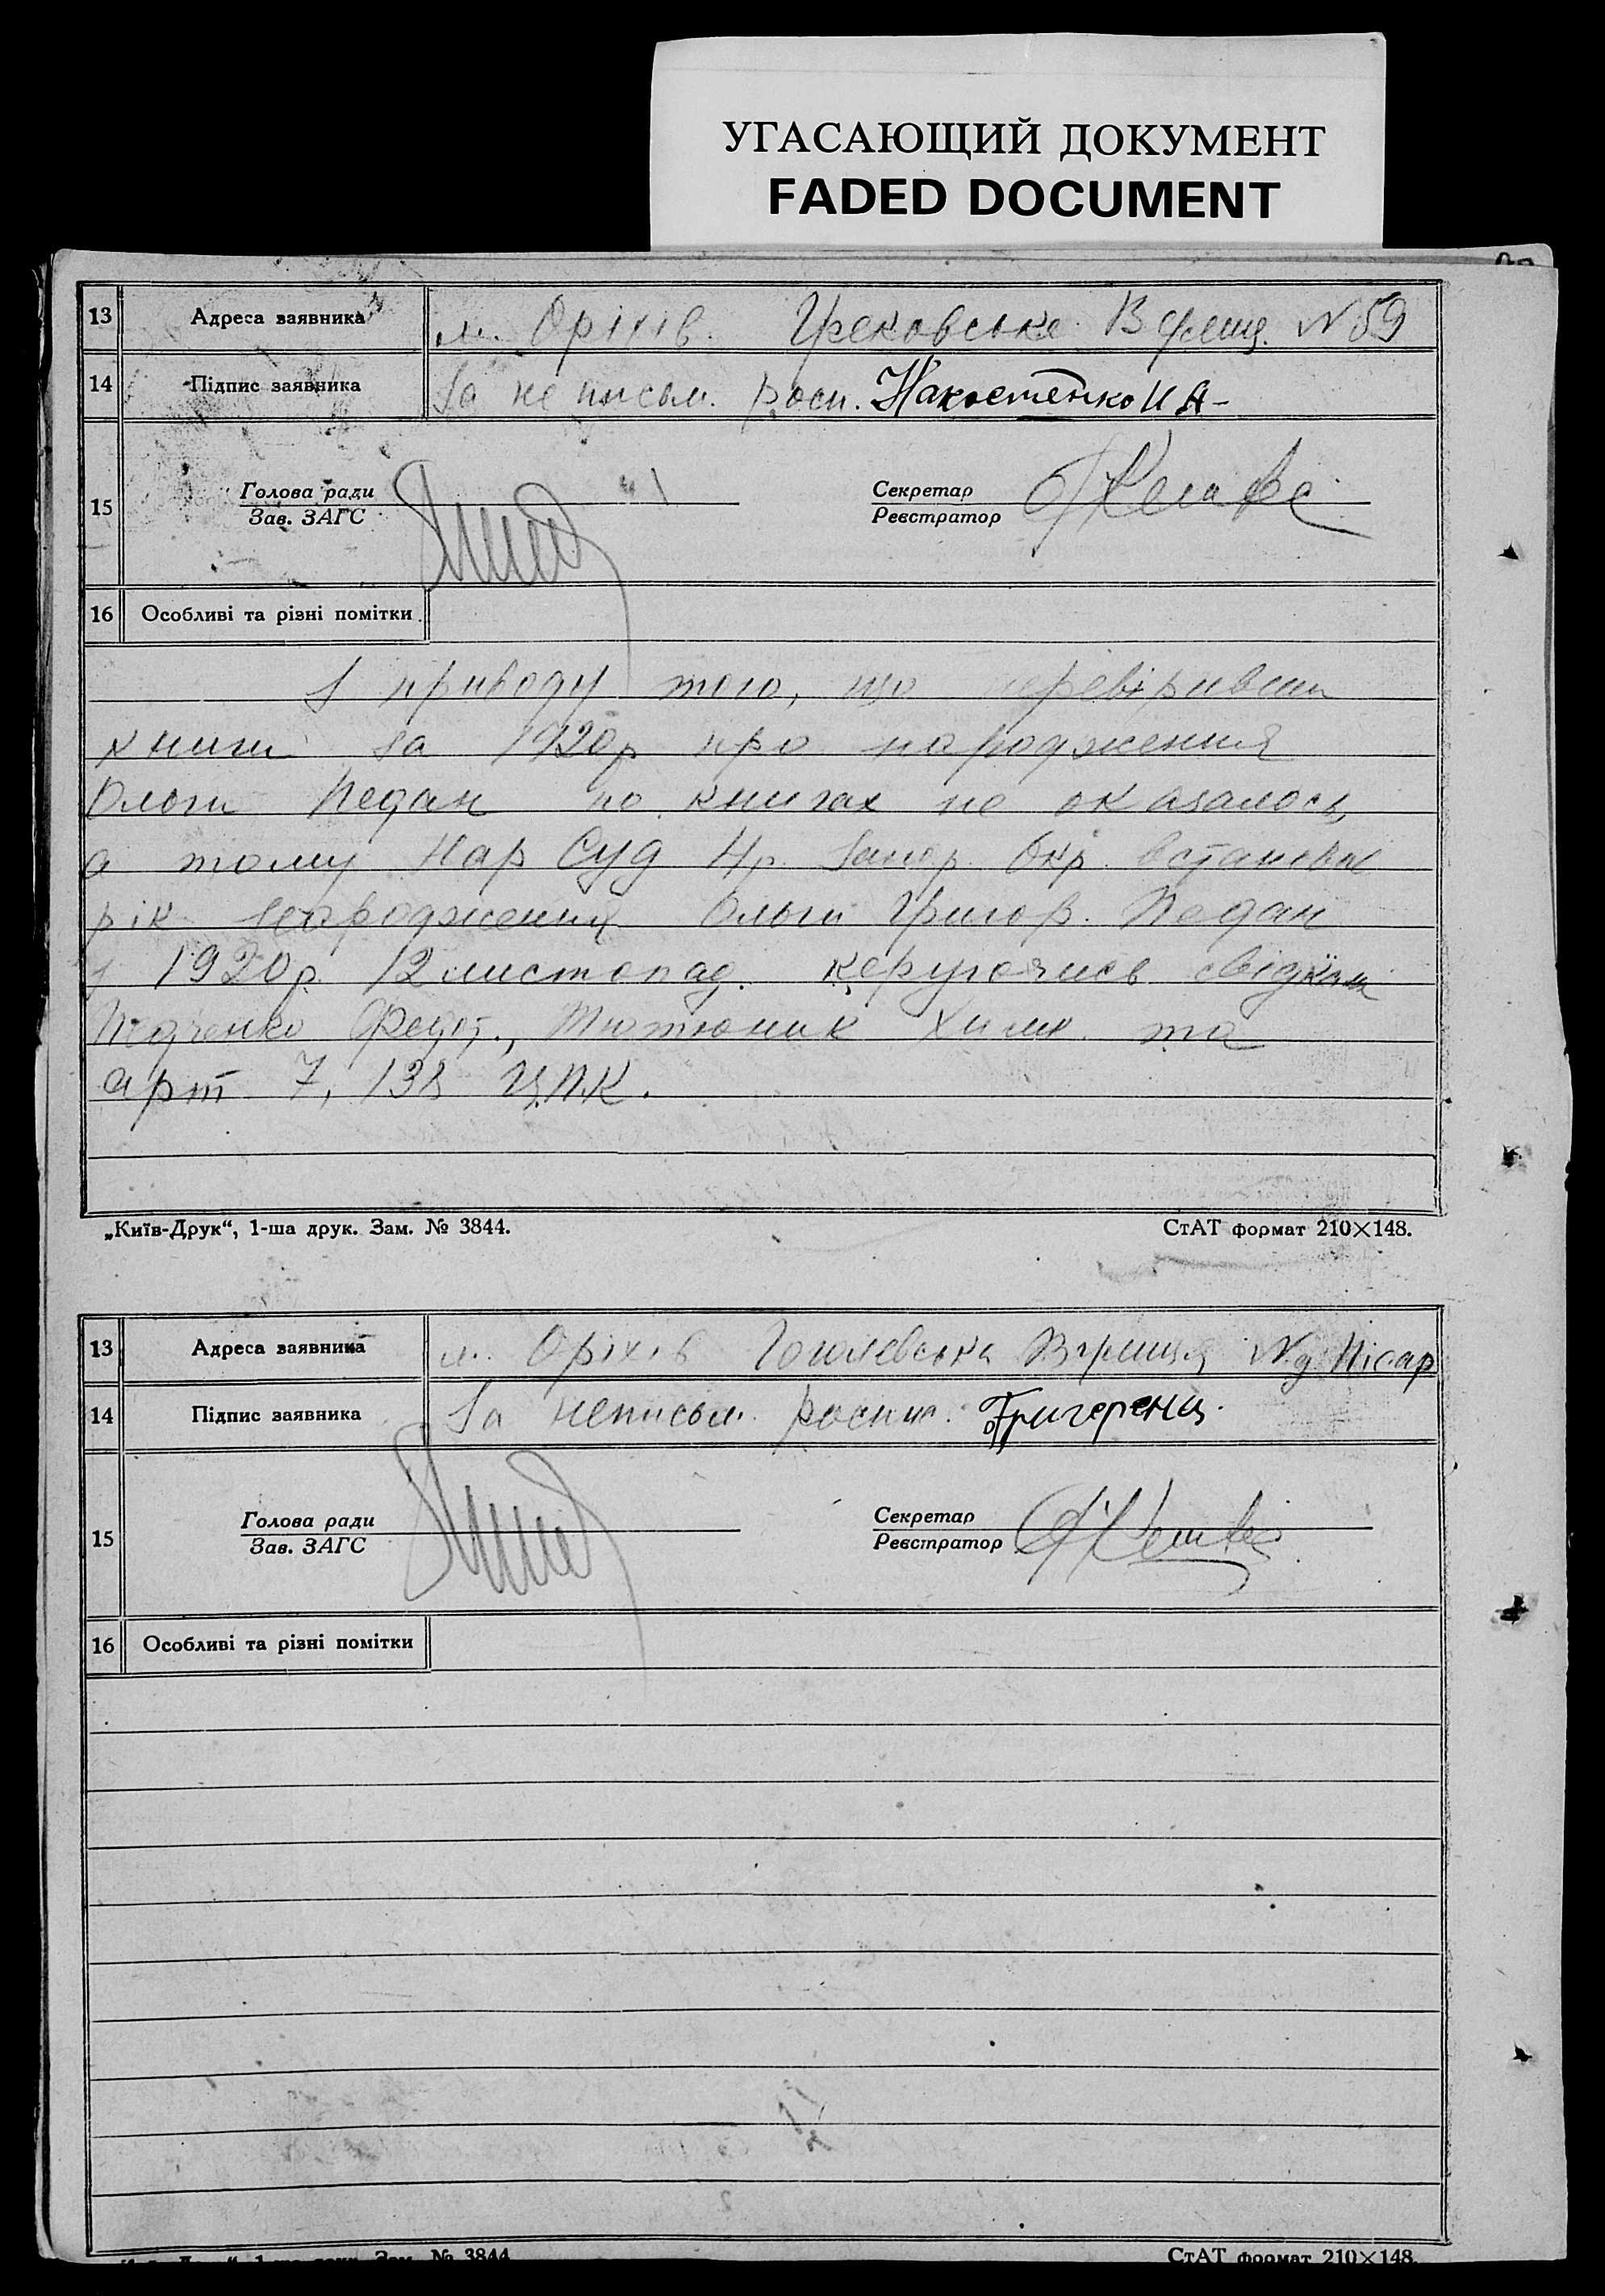 УГАСАЮЩИЙ ДОКУМЕНТ
FADED DOCUMENT
13 Адреса заявника м. Оріхів. Грековська Вулиц. №59
14 Підпис заявника За не письм. росп.
15 Голова ради
Зав. ЗАГС
Секретар
Реєстратор
16 Особливі та різні помітки
З приводу того, що перевіривши
книги за 1920р про народження
Ольги Педан по книгах не оказалось,
а тому Нар Суд Запор. Окр. встановив
рік народження Ольги Григор. Педан
у 1920р. 12 листопад. керуючись свідками
Федот., Тютюник Хима та
арт 7, 138 Ц.П.К.
„Київ-Друк“, 1-ша друк. Зам. № 3844.
СтАТ формат 210×148.
13 Адреса заявника м. Оріхів Гоголевська Вулиця
14 Підпис заявника За неписьм. роспис.
15 Голова ради
Зав. ЗАГС
Секретар
Реєстратор
16 Особливі та різні помітки
Зам. № 3844
СтАТ формат 210×148.